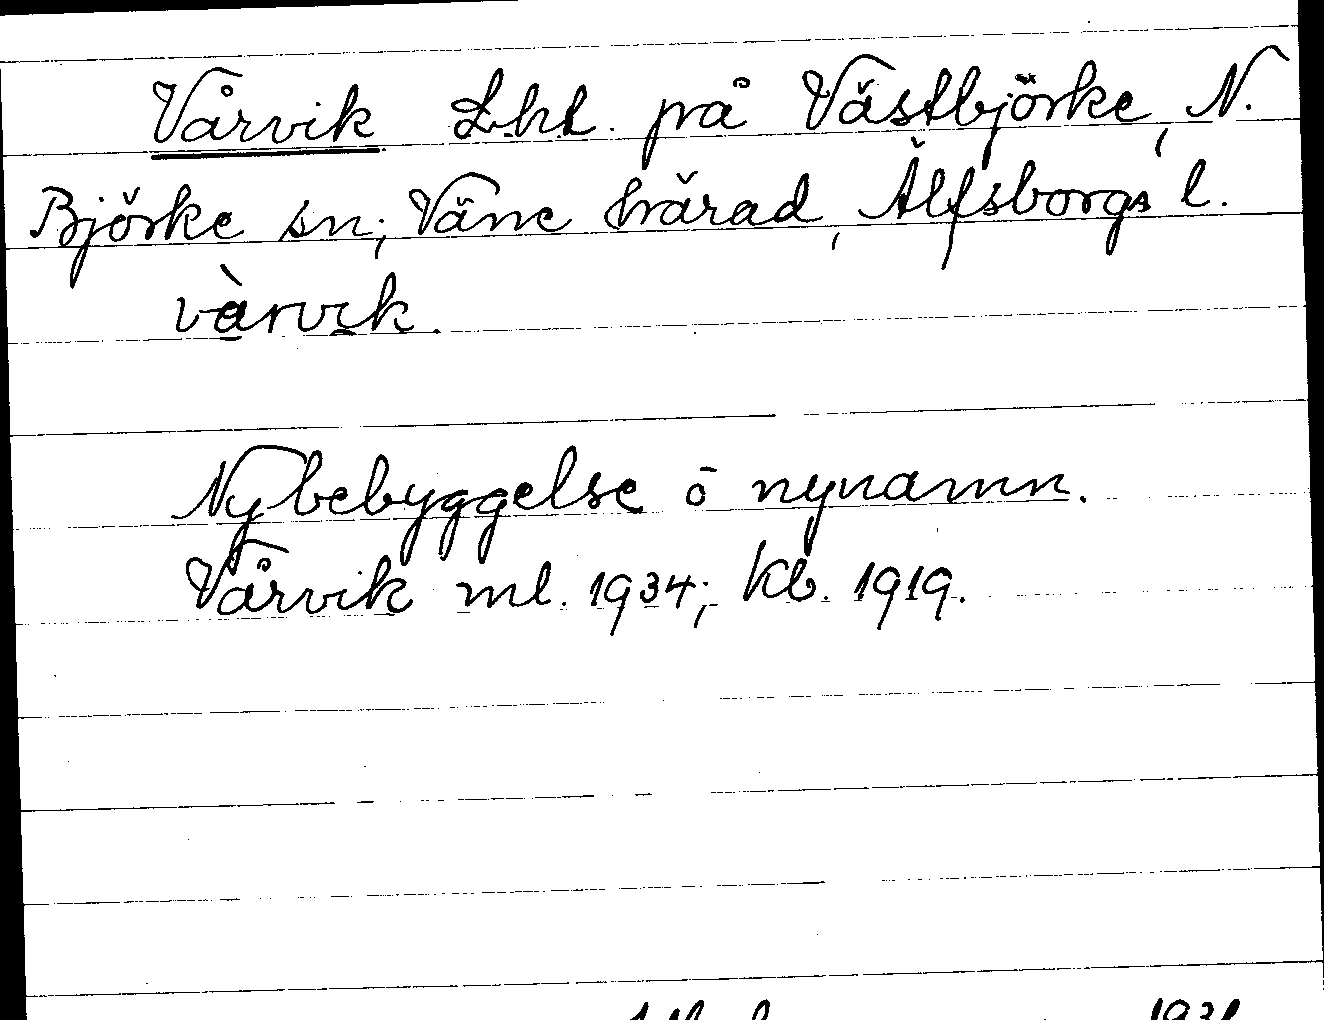 Vårvik Lht. på Västbjörke, N.
Björke sn; Väne härad, Älfsborgs l.
vàrvik.
Nybebyggelse o nynamn.
Vårvik ml. 1934; Kb. 1919.